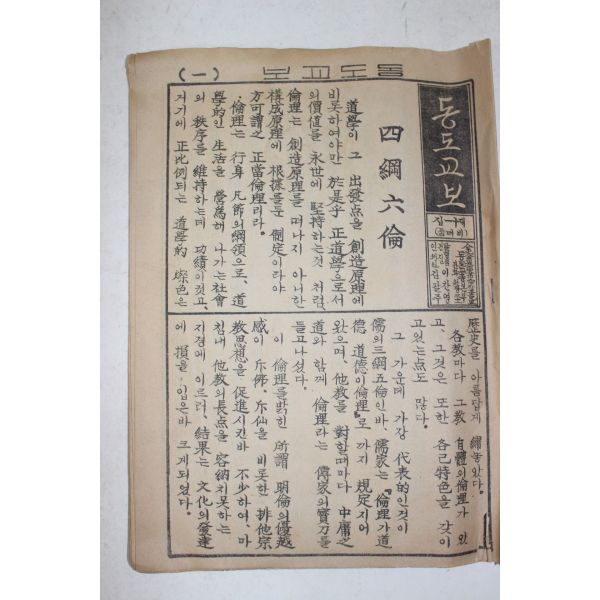 동도교보 (一)
동도교보
四綱六倫
道學이 그 出發点을 創造原理에
비롯하여야만 於是乎 正道學으로서
의 價値를 永世에 堅持하는것 처럼、
倫理는 創造原理를 떠나지 아니한
構成原理에 根據를둔 制定이라야
方可謂之 正當倫理리라。
倫理는 行身 凡節의 綱領으로、道
學的인 生活을 營爲해 나가는 社會
의 秩序를 維持하는데 功績이컷고、
거기에 正比例되는 道學的 燦色은
歷史를 아름답게 繡놓았다。
各敎마다 그敎 自體의 倫理가 있
고、그것은 또한 各己特色을 갖이
고있는点도 많다。
그 가운데 가장 代表的인것이
儒의 三綱五倫인바、儒家는 『倫理가 道
德 道德이 倫理』로 까지 規定지어
왔으며、他敎를 對할때마다 中庸之
道와 함께 倫理라는 傳家의 寶刀를
들고나섰다。
이 倫理를밝힌 所謂 明倫의 優越
感이 斥佛、斥仙을 비롯한 排他宗
敎思想을 促進시킨바 不少하여、마
침내 他敎의 長点을 容納치못하는
지경에 이르러、結果는 文化의 發達
에 損을 입은바 크게되었다。